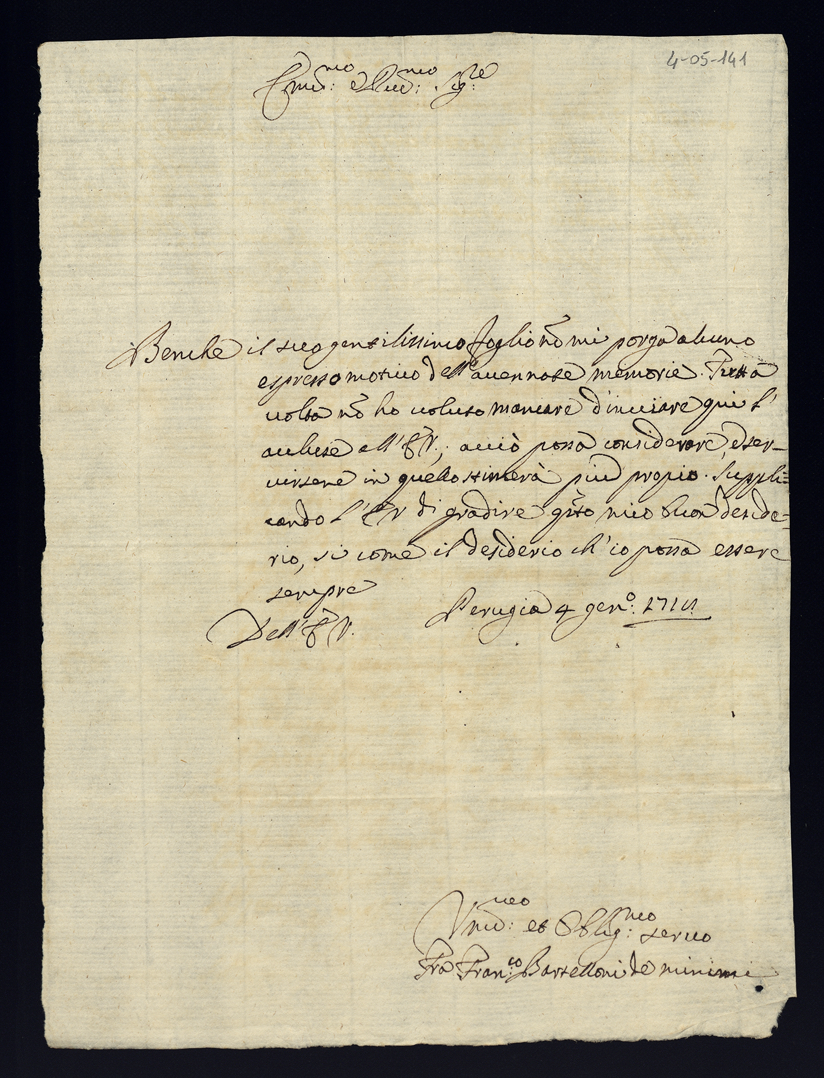 4-05-141
Em̃:mo e Rev:mo Sig:re
Benche il suo gentilissimo foglio nõ mi porga alcuno
espresso motivo dell'avennote memorie. Tutta
volta nõ ho voluto mancare d'inviare qui l'
accluse all'E V., acciò possa considerare, e ser-
virsene in quello stimerà più proprio. Suppli=
cando l'E V di gradire q̃sto mio buon deside=
rio, si come il desiderio ch'io possa essere
sempre
Dell' E V. Perugia 4 gen:o
Um:mo et Oblig:mo servo
Fra Fran:co Bartelloni de minimi